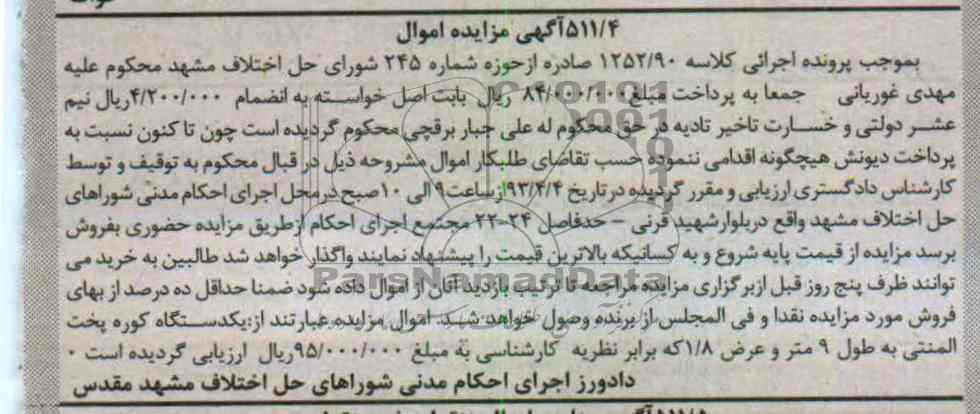 ۵۱۱/۴آگهی مزایده اموال
بموجب پرونده اجرائی کلاسه ۱۲۵۲/۹۰ صادره ازحوزه شماره ۲۴۵ شورای حل اختلاف مشهد محکوم علیه
مهدی غوریانی جمعا به پرداخت مبلغ ۸۴/۰۰۰/۰۰۰ ریال بابت اصل خواسته به انضمام ۴/۲۰۰/۰۰۰ریال نیم
عشر دولتی و خسارت تاخیر تادیه در حق محکوم له علی جبار برقچی محکوم گردیده است چون تا کنون نسبت به
پرداخت دیونش هیچگونه اقدامی ننموده حسب تقاضای طلبکار اموال مشروحه ذیل در قبال محکوم به توقیف و توسط
کارشناس دادگستری ارزیابی و مقرر گردیده در تاریخ ۹۳/۴/۴ازساعت۹ الی ۱۰صبح درمحل اجرای احکام مدنی شوراهای
حل اختلاف مشهد واقع دربلوارشهید قرنی – حدفاصل ۲۴-۲۲ مجتمع اجرای احکام ازطریق مزایده حضوری بفروش
برسد مزایده از قیمت پایه شروع و به کسانیکه بالاترین قیمت را پیشنهاد نمایند واگذار خواهد شد طالبین به خرید می
توانند ظرف پنج روز قبل ازبرگزاری مزایده مراجعه تا ترتیب بازدید آنان از اموال داده شود ضمنا حداقل ده درصد از بهای
فروش مورد مزایده نقدا و فی المجلس از برنده وصول خواهد شد. اموال مزایده عبارتند از:یکدستگاه کوره پخت
المنتی به طول ۹ متر و عرض ۱/۸که برابر نظریه کارشناسی به مبلغ ۹۵/۰۰۰/۰۰۰ریال ارزیابی گردیده است ۰
دادورز اجرای احکام مدنی شوراهای حل اختلاف مشهد مقدس
ParsNamadData